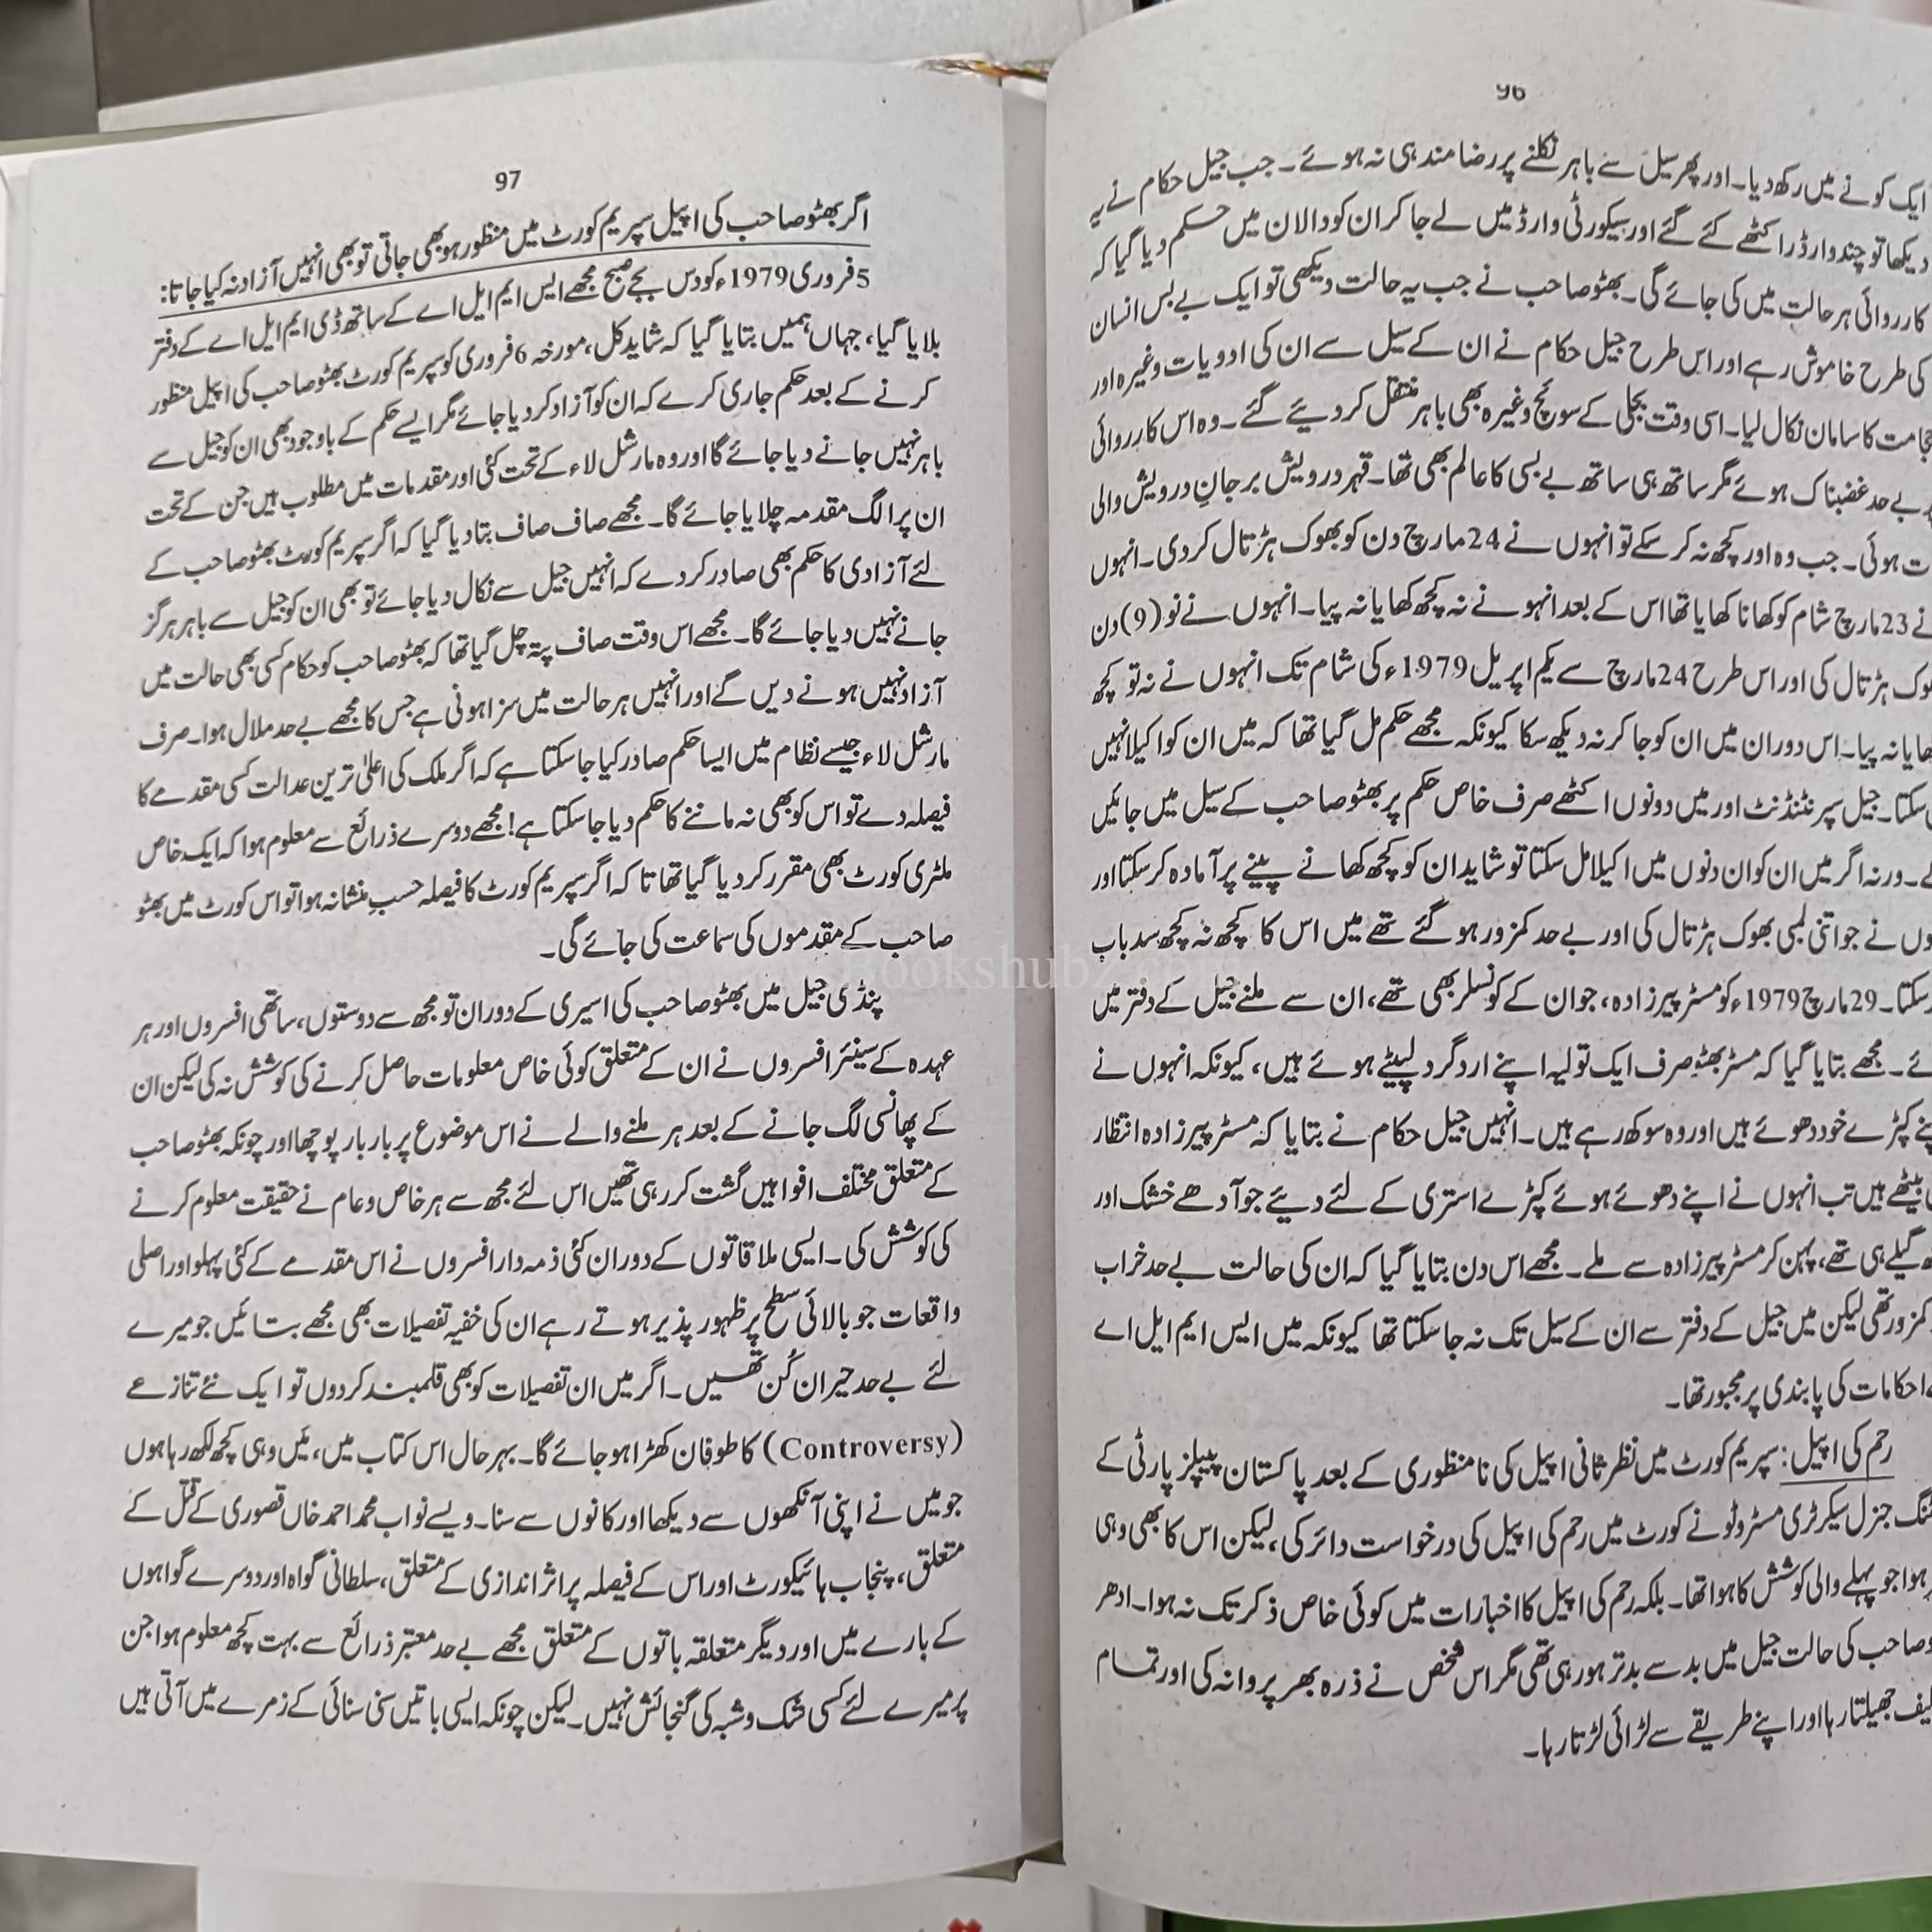 96
ایک کونے میں رکھ دیا۔ اور پھر سیل سے باہر نکلنے پر رضامند ہی نہ ہوئے۔ جب جیل حکام نے یہ
دیکھا تو چند وارڈر اکٹھے کئے گئے اور سیکورٹی وارڈ میں لے جا کر ان کو دالان میں حکم دیا گیا کہ
کارروائی ہر حالت میں کی جائے گی۔ بھٹو صاحب نے جب یہ حالت دیکھی تو ایک بے بس انسان
کی طرح خاموش رہے اور اس طرح جیل حکام نے ان کے سیل سے ان کی ادویات وغیرہ اور
کا سامان نکال لیا۔ اسی وقت بجلی کے سوئچ وغیرہ بھی باہر منتقل کر دیئے گئے۔ وہ اس کارروائی
بے حد غضبناک ہوئے مگر ساتھ ہی ساتھ بے بسی کا عالم بھی تھا۔ قہر درویش بر جانِ درویش والی
ہوئی۔ جب وہ اور کچھ نہ کر سکے تو انہوں نے 24 مارچ دن کو بھوک ہڑتال کر دی۔ انہوں
نے 23 مارچ شام کو کھانا کھایا تھا اس کے بعد انہو نے نہ کچھ کھایا نہ پیا۔ انہوں نے نو (9) دن
ہڑتال کی اور اس طرح 24 مارچ سے یکم اپریل 1979ء کی شام تک انہوں نے نہ تو کچھ
نہ پیا۔ اس دوران میں ان کو جا کر نہ دیکھ سکا کیونکہ مجھے حکم مل گیا تھا کہ میں ان کو اکیلا نہیں
سکتا۔ جیل سپرنٹنڈنٹ اور میں دونوں اکٹھے صرف خاص حکم پر بھٹو صاحب کے سیل میں جائیں
ورنہ اگر میں ان کو ان دنوں میں اکیلا مل سکتا تو شاید ان کو کچھ کھانے پینے پر آمادہ کر سکتا اور
نے جو اتنی لمبی بھوک ہڑتال کی اور بے حد کمزور ہو گئے تھے میں اس کا کچھ نہ کچھ سدباب
سکتا۔ 29 مارچ 1979ء کو مسٹر پیرزادہ، جو ان کے کونسلر بھی تھے، ان سے ملنے جیل کے دفتر میں
مجھے بتایا گیا کہ مسٹر بھٹو صرف ایک تولیہ اپنے ارد گرد لپیٹے ہوئے ہیں، کیونکہ انہوں نے
کپڑے خود دھوئے ہیں اور وہ سوکھ رہے ہیں۔ انہیں جیل حکام نے بتایا کہ مسٹر پیرزادہ انتظار
بیٹھے ہیں تب انہوں نے اپنے دھوئے ہوئے کپڑے استری کے لئے دیئے جو آدھے خشک اور
گیلے ہی تھے، پہن کر مسٹر پیرزادہ سے ملے۔ مجھے اس دن بتایا گیا کہ ان کی حالت بے حد خراب
کمزور تھی لیکن میں جیل کے دفتر سے ان کے سیل تک نہ جا سکتا تھا کیونکہ میں ایس ایم ایل اے
احکامات کی پابندی پر مجبور تھا۔
رحم کی اپیل: سپریم کورٹ میں نظر ثانی اپیل کی نا منظوری کے بعد پاکستان پیپلز پارٹی کے
جنرل سیکرٹری مسٹر وٹو نے کورٹ میں رحم کی اپیل کی درخواست دائر کی، لیکن اس کا بھی وہی
ہوا جو پہلے والی کوشش کا ہوا تھا۔ بلکہ رحم کی اپیل کا اخبارات میں کوئی خاص ذکر تک نہ ہوا۔ ادھر
صاحب کی حالت جیل میں بد سے بدتر ہو رہی تھی مگر اس شخص نے ذرہ بھر پروا نہ کی اور تمام
جھیلتا رہا اور اپنے طریقے سے لڑائی لڑتا رہا۔
97
اگر بھٹو صاحب کی اپیل سپریم کورٹ میں منظور ہو بھی جاتی تو بھی انہیں آزاد نہ کیا جاتا:
5 فروری 1979ء کو دس بجے صبح مجھے ایس ایم ایل اے کے ساتھ ڈی ایم ایل اے کے دفتر
بلایا گیا، جہاں ہمیں بتایا گیا کہ شاید کل، مورخہ 6 فروری کو سپریم کورٹ بھٹو صاحب کی اپیل منظور
کرنے کے بعد حکم جاری کرے کہ ان کو آزاد کر دیا جائے مگر ایسے حکم کے باوجود بھی ان کو جیل سے
باہر نہیں جانے دیا جائے گا اور وہ مارشل لاء کے تحت کئی اور مقدمات میں مطلوب ہیں جن کے تحت
ان پر الگ مقدمہ چلایا جائے گا۔ مجھے صاف صاف بتا دیا گیا کہ اگر سپریم کورٹ بھٹو صاحب کے
لئے آزادی کا حکم بھی صادر کر دے کہ انہیں جیل سے نکال دیا جائے تو بھی ان کو جیل سے باہر ہرگز
جانے نہیں دیا جائے گا۔ مجھے اس وقت صاف پتہ چل گیا تھا کہ بھٹو صاحب کو حکام کسی بھی حالت میں
آزاد نہیں ہونے دیں گے اور انہیں ہر حالت میں سزا ہونی ہے جس کا مجھے بے حد ملال ہوا۔ صرف
مارشل لاء جیسے نظام میں ایسا حکم صادر کیا جا سکتا ہے کہ اگر ملک کی اعلیٰ ترین عدالت کسی مقدمے کا
فیصلہ دے تو اس کو بھی نہ ماننے کا حکم دیا جا سکتا ہے! مجھے دوسرے ذرائع سے معلوم ہوا کہ ایک خاص
ملٹری کورٹ بھی مقرر کر دیا گیا تھا تا کہ اگر سپریم کورٹ کا فیصلہ حسبِ منشا نہ ہوا تو اس کورٹ میں بھٹو
صاحب کے مقدموں کی سماعت کی جائے گی۔
پنڈی جیل میں بھٹو صاحب کی اسیری کے دوران تو مجھ سے دوستوں، ساتھی افسروں اور ہر
عہدہ کے سینئر افسروں نے ان کے متعلق کوئی خاص معلومات حاصل کرنے کی کوشش نہ کی لیکن ان
کے پھانسی لگ جانے کے بعد ہر ملنے والے نے اس موضوع پر بار بار پوچھا اور چونکہ بھٹو صاحب
کے متعلق مختلف افواہیں گشت کر رہی تھیں اس لئے مجھ سے ہر خاص و عام نے حقیقت معلوم کرنے
کی کوشش کی۔ ایسی ملاقاتوں کے دوران کئی ذمہ دار افسروں نے اس مقدمے کے کئی پہلو اور اصلی
واقعات جو بالائی سطح پر ظہور پذیر ہوتے رہے ان کی خفیہ تفصیلات بھی مجھے بتائیں جو میرے
لئے بے حد حیران کُن تھیں۔ اگر میں ان تفصیلات کو بھی قلمبند کر دوں تو ایک نئے تنازعے
(Controversy) کا طوفان کھڑا ہو جائے گا۔ بہر حال اس کتاب میں، میں وہی کچھ لکھ رہا ہوں
جو میں نے اپنی آنکھوں سے دیکھا اور کانوں سے سنا۔ ویسے نواب محمد احمد خاں قصوری کے قتل کے
متعلق، پنجاب ہائیکورٹ اور اس کے فیصلہ پر اثر اندازی کے متعلق، سلطانی گواہ اور دوسرے گواہوں
کے بارے میں اور دیگر متعلقہ باتوں کے متعلق مجھے بے حد معتبر ذرائع سے بہت کچھ معلوم ہوا جن
پر میرے لئے کسی شک و شبہ کی گنجائش نہیں۔ لیکن چونکہ ایسی باتیں سنی سنائی کے زمرے میں آتی ہیں